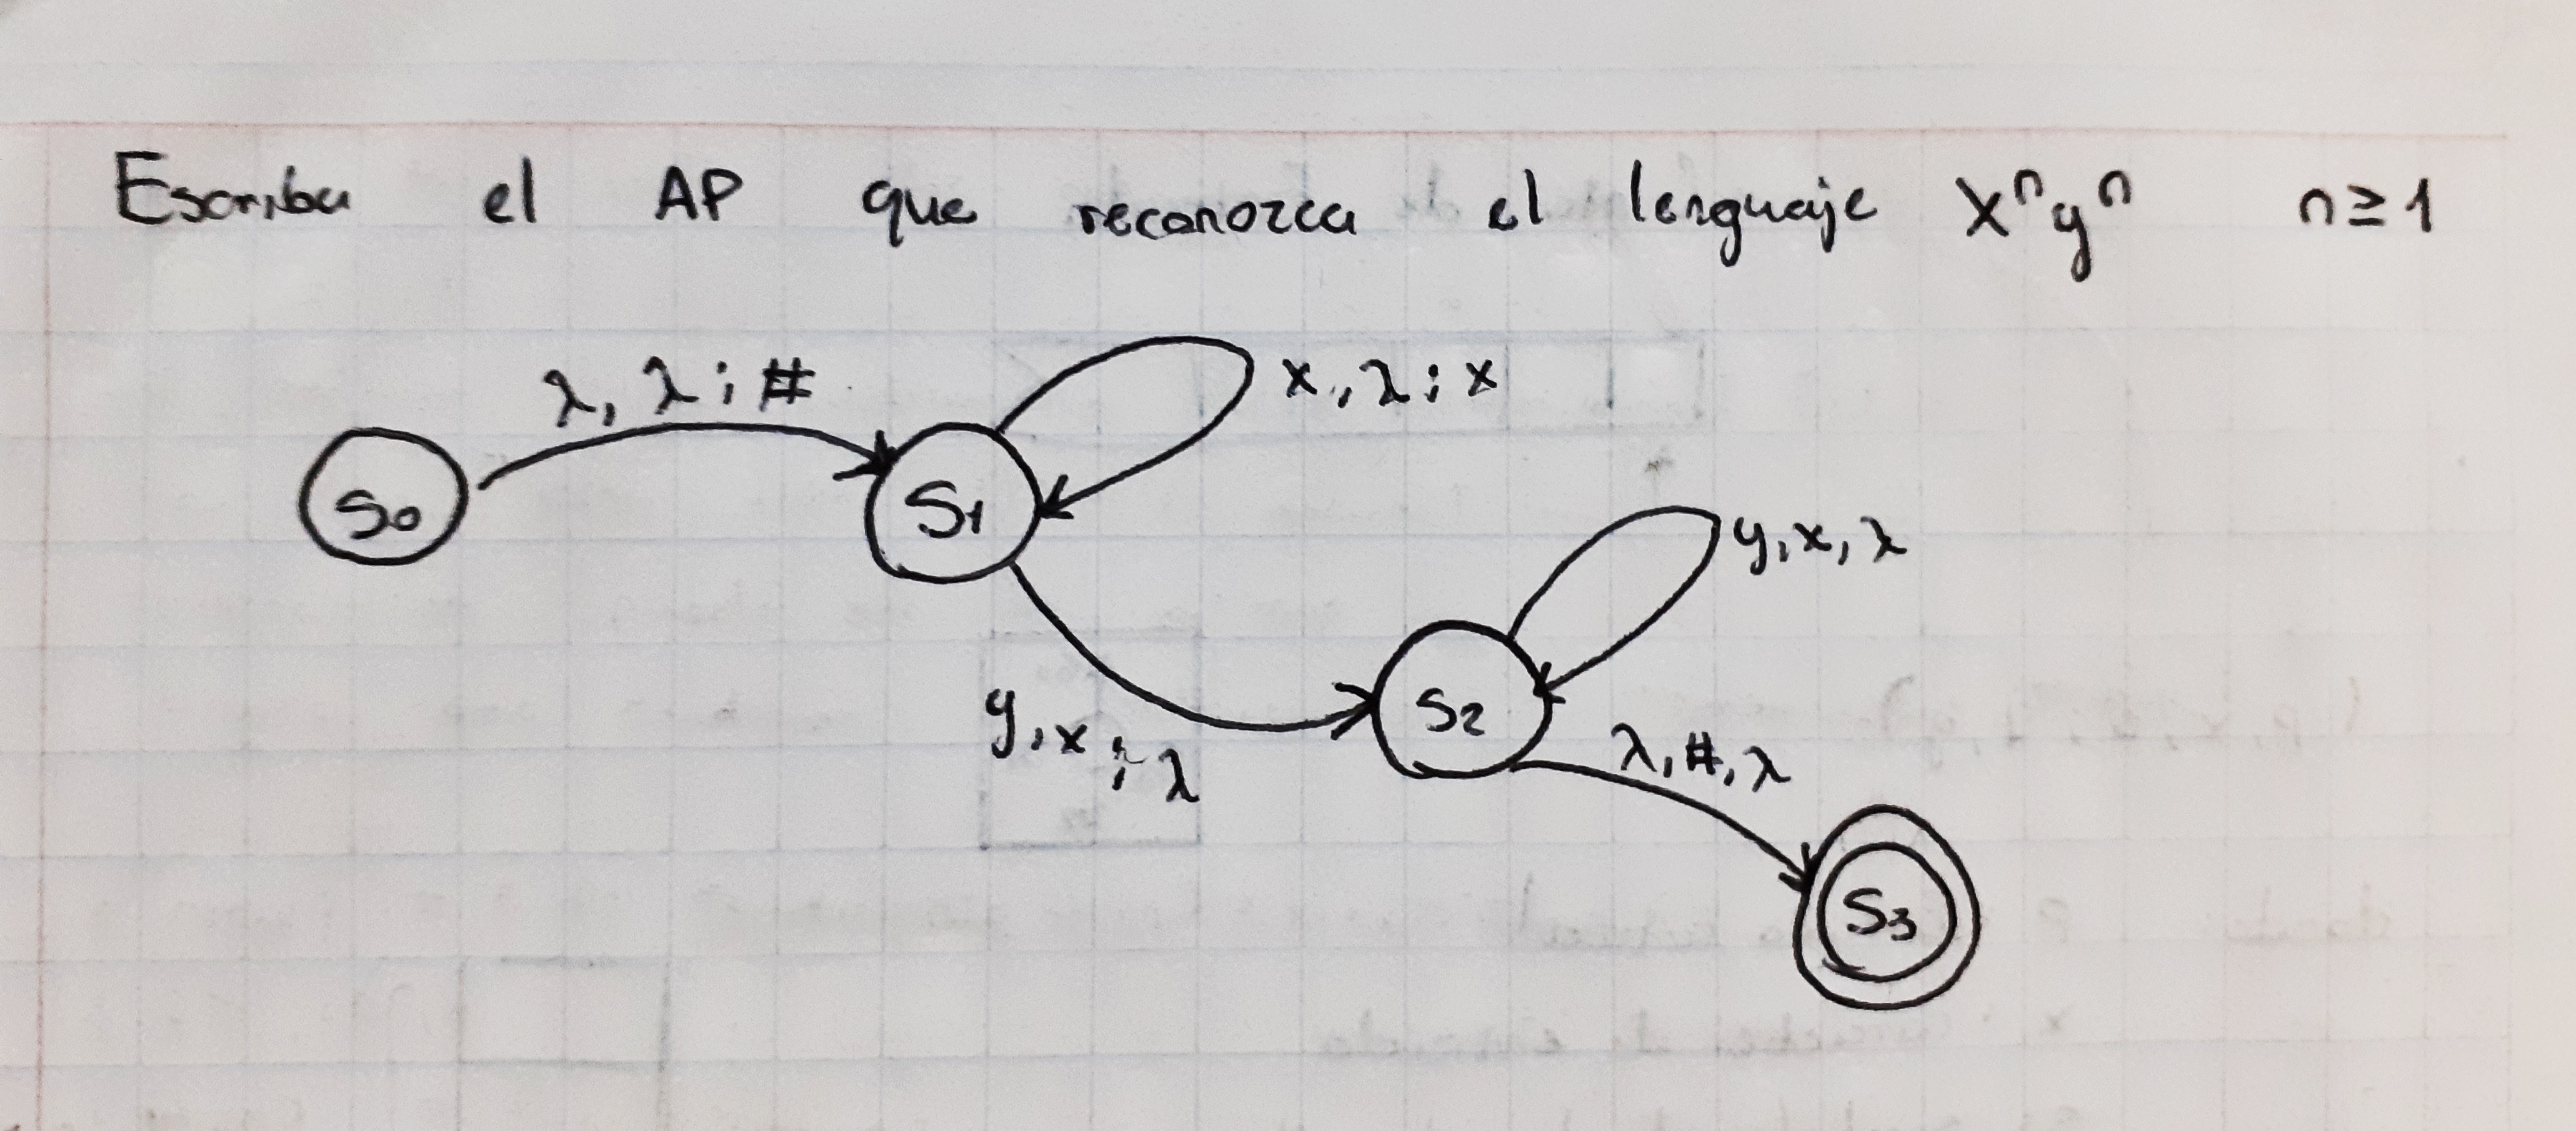 Escriba el AP que reconozca el lenguaje xⁿyⁿ n≥1
λ, λ; #
x, λ; x
S0
S1
y, x, λ
y, x; λ
S2
λ, #, λ
S3